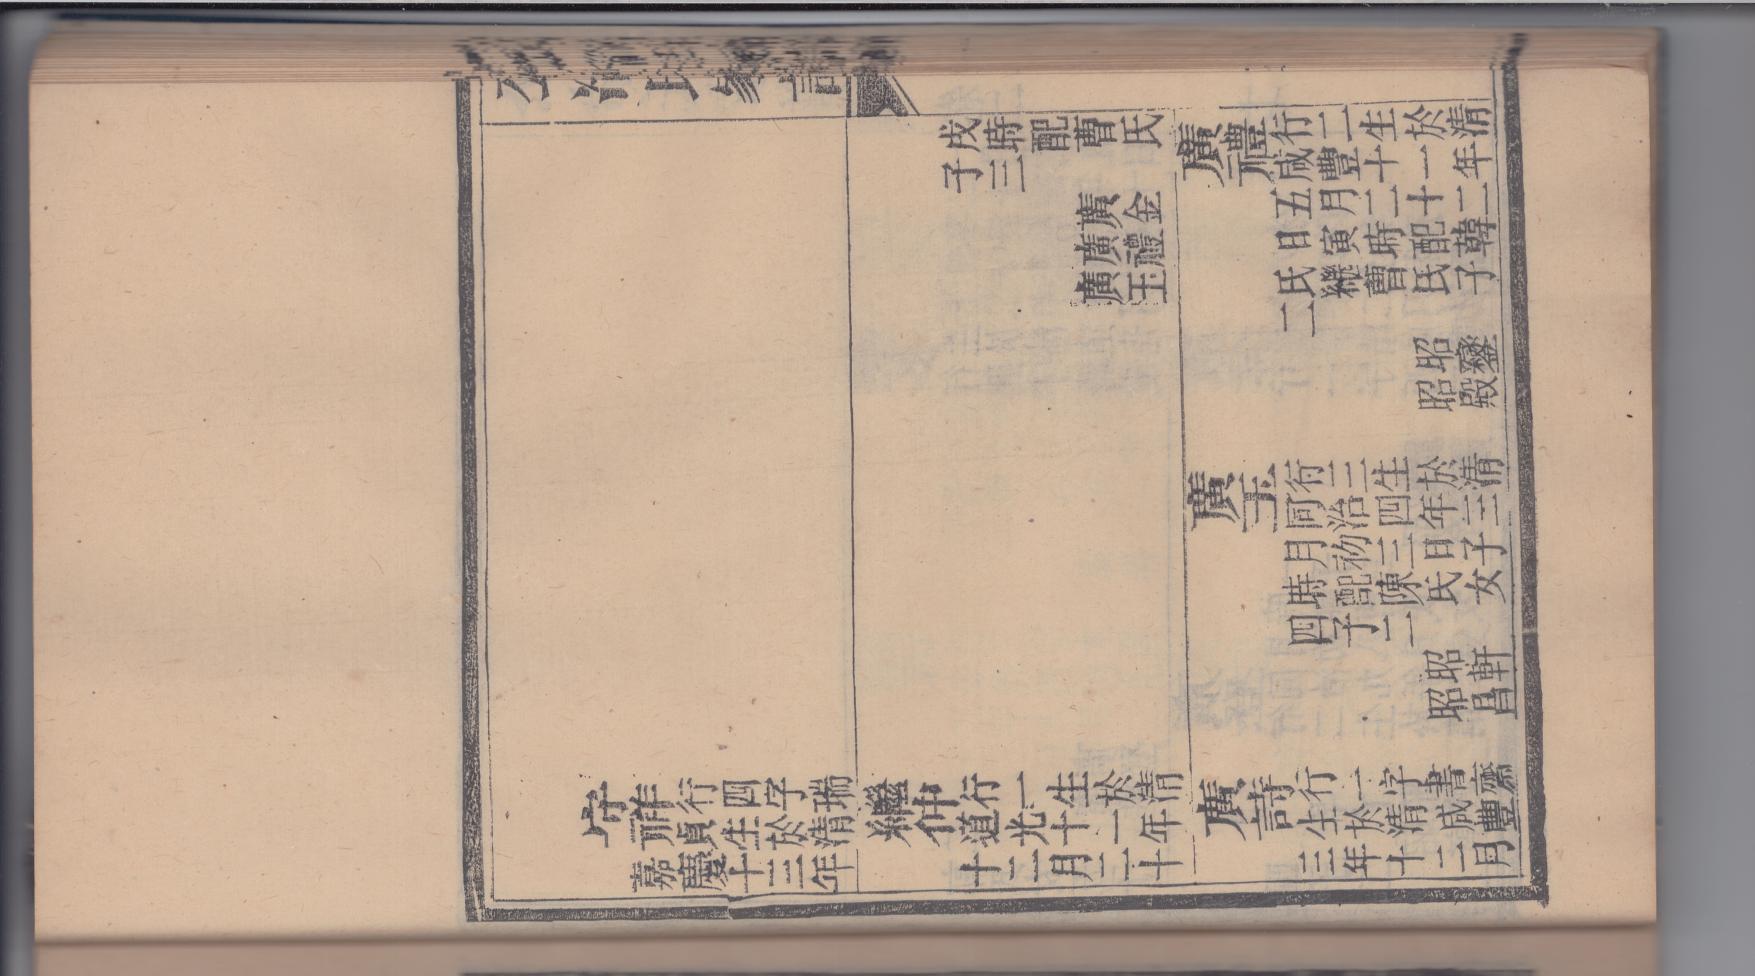 氏家譜
守祚行四字瑞
貞生於清
嘉慶十三年
戌時配曹氏
子三
廣金
廣禮
廣玉
繼仲行一生於清
道光十一年
十二月二十
廣禮行二生於清
咸豐十一年
五月二十二
日寅時配韓
氏繼曹氏子
二
昭鑾
昭殿
廣玉行三生於清
同治四年三
月初二日子
時配陳氏女
四子二
昭軒
昭昌
廣詩行一字書齋
生於清咸豐
三年十二月